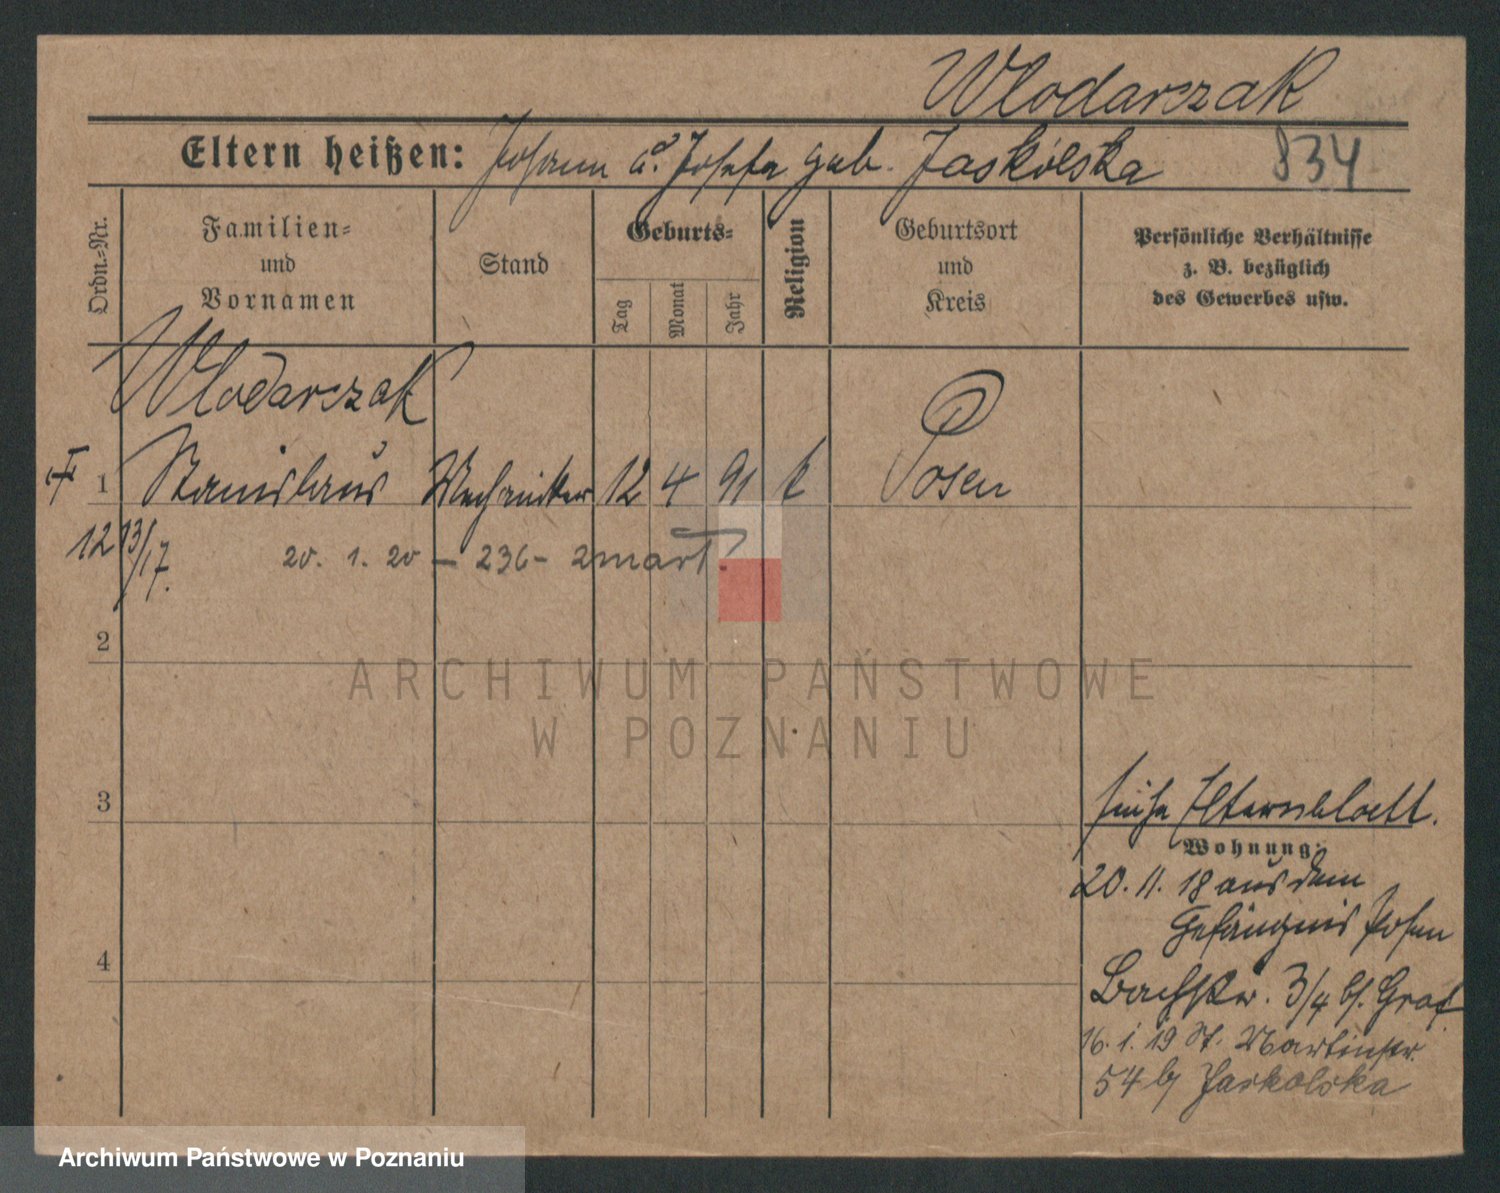 Wlodarczak
Eltern heißen: Johann u. Josefa geb. Jaskólska 834
Ordn.-Nr.
Familien-
und
Vornamen
Stand
Geburts-
Tag
Monat
Jahr
Religion
Geburtsort
und
Kreis
Persönliche Verhältnisse
z. B. bezüglich
des Gewerbes usw.
Wlodarczak
1 Stanislaus Mechaniker 12 4 91 k Posen
12 13/17.
20. 1. 20 – 236 – zmarł.
2
ARCHIWUM PAŃSTWOWE
W POZNANIU
3
siehe Elternblatt.
Wohnung:
20. 11. 18 aus dem
Gefängnis Posen
4
Bachstr. 3/4 bs. Graf
16. 1. 19 St. Martinstr.
54 b/ Jaskolska
Archiwum Państwowe w Poznaniu